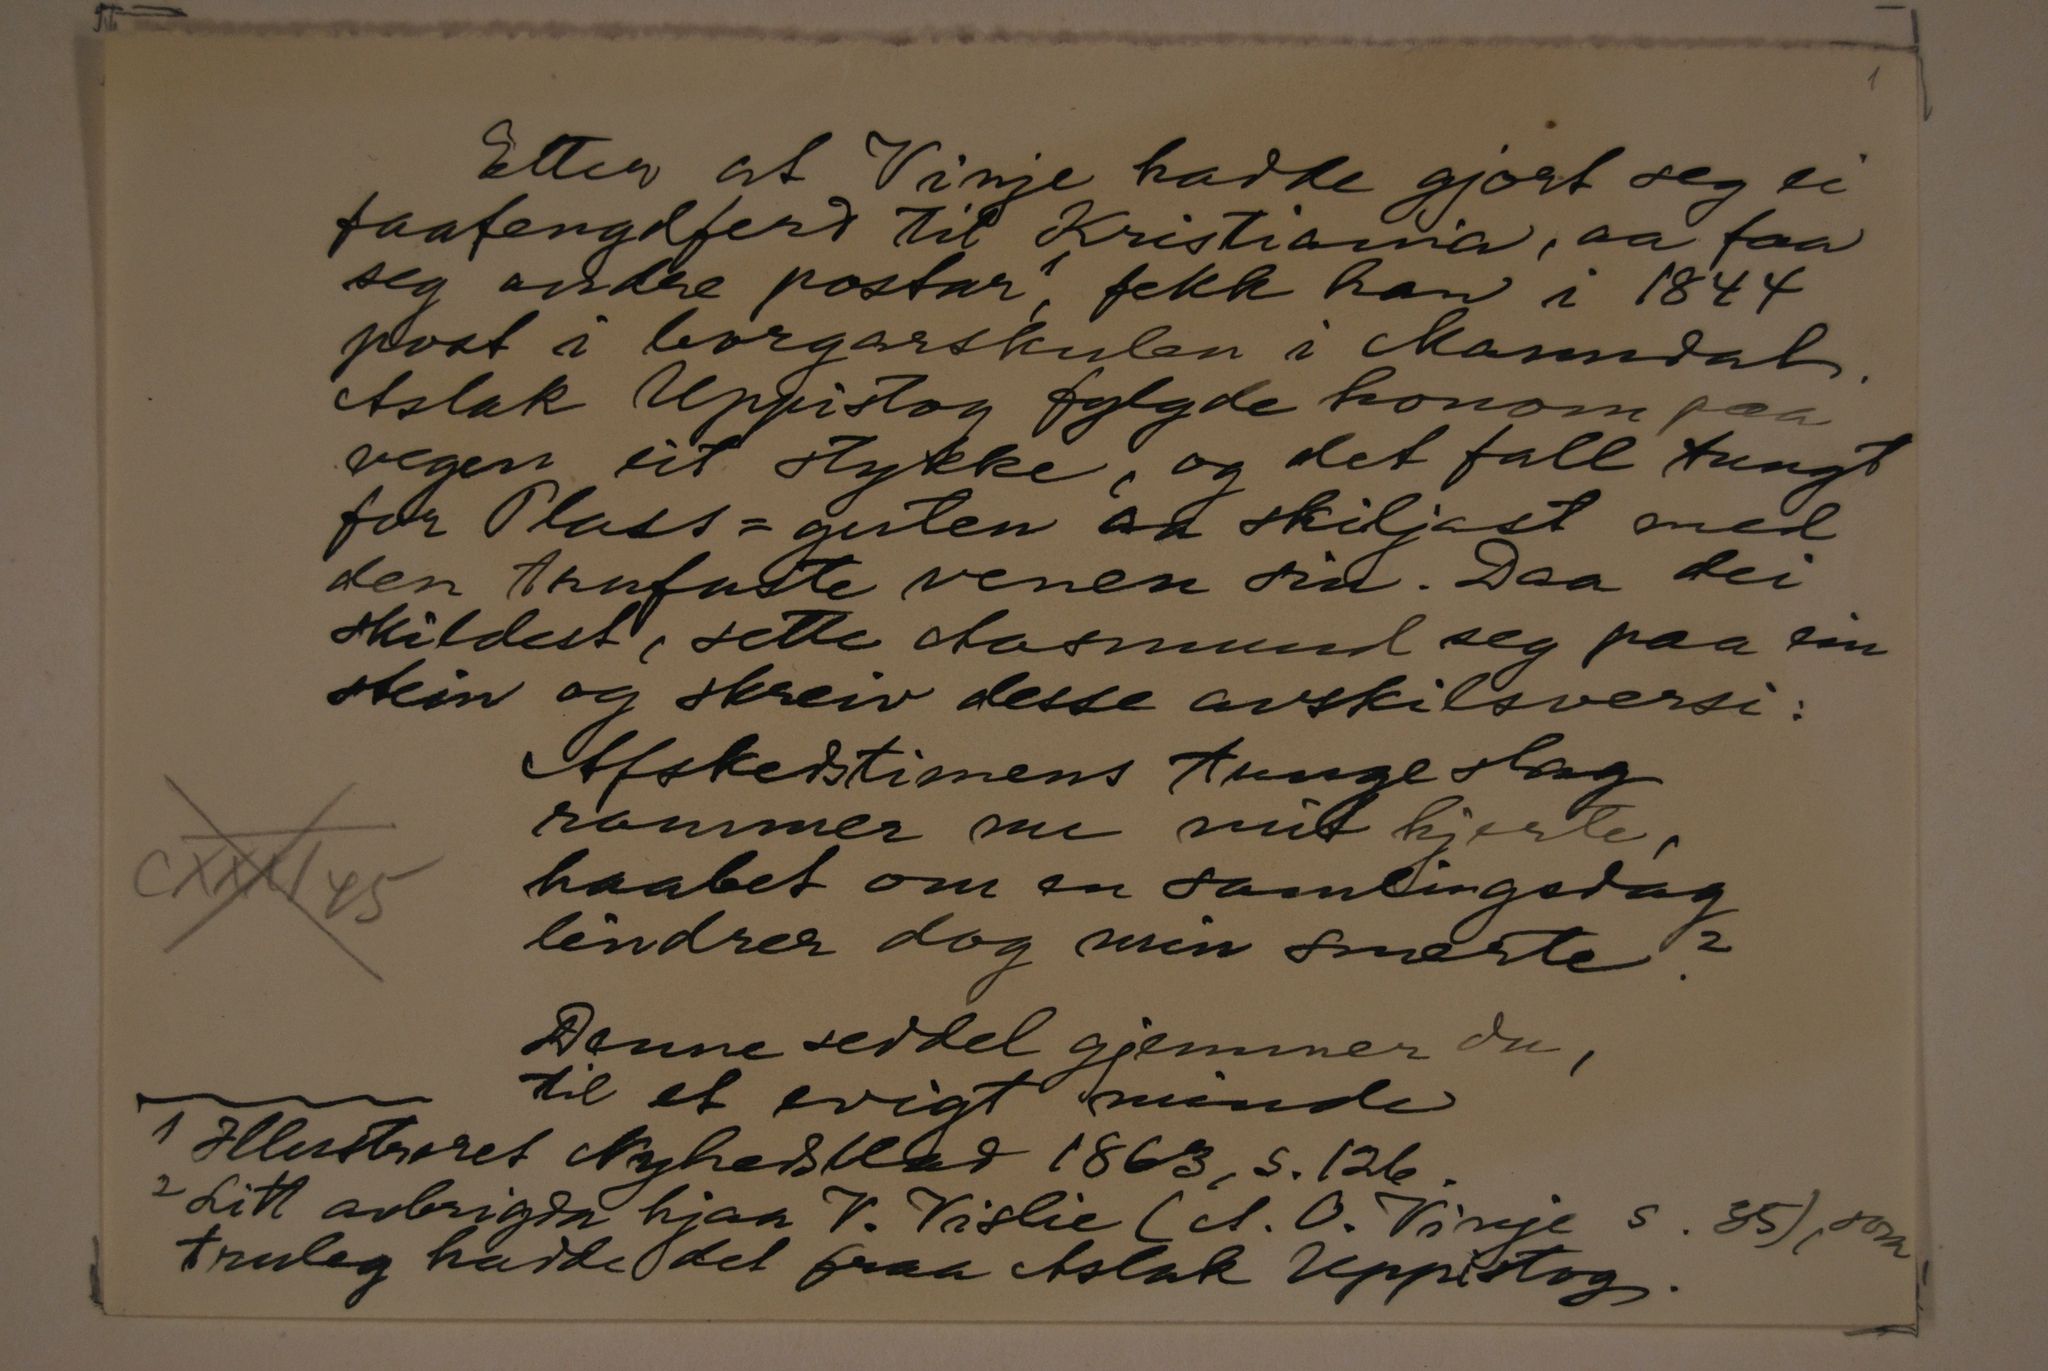 1
Etter at Vinje hadde gjort seg ei
faafengdferd til Kristiania, „aa faa
seg andre postar“¹, fekk han i 1844
post i borgarskulen i Manndal.
Aslak Uppistog fylgde honom paa
vegen eit stykke, og det fall tungt
for Plass=guten aa skiljast med
den trufaste venen sin. Daa dei
skildest, sette Aasmund seg paa ein
stein og skreiv desse avskilsversi:
Afskedstimens tunge slag
rammer nu mit hjerte,
haabet om en samlingsdag
lindrer dog min smerte.²
CXXXI 45
Denne seddel gjemmer du,
til et evigt minde
1 Illustreret Nyhedsblad 1863, s. 126.
2 Litt avbrigda hjaa V. Vislie (A. O. Vinje s. 35), som
truleg hadde det fraa Aslak Uppistog.